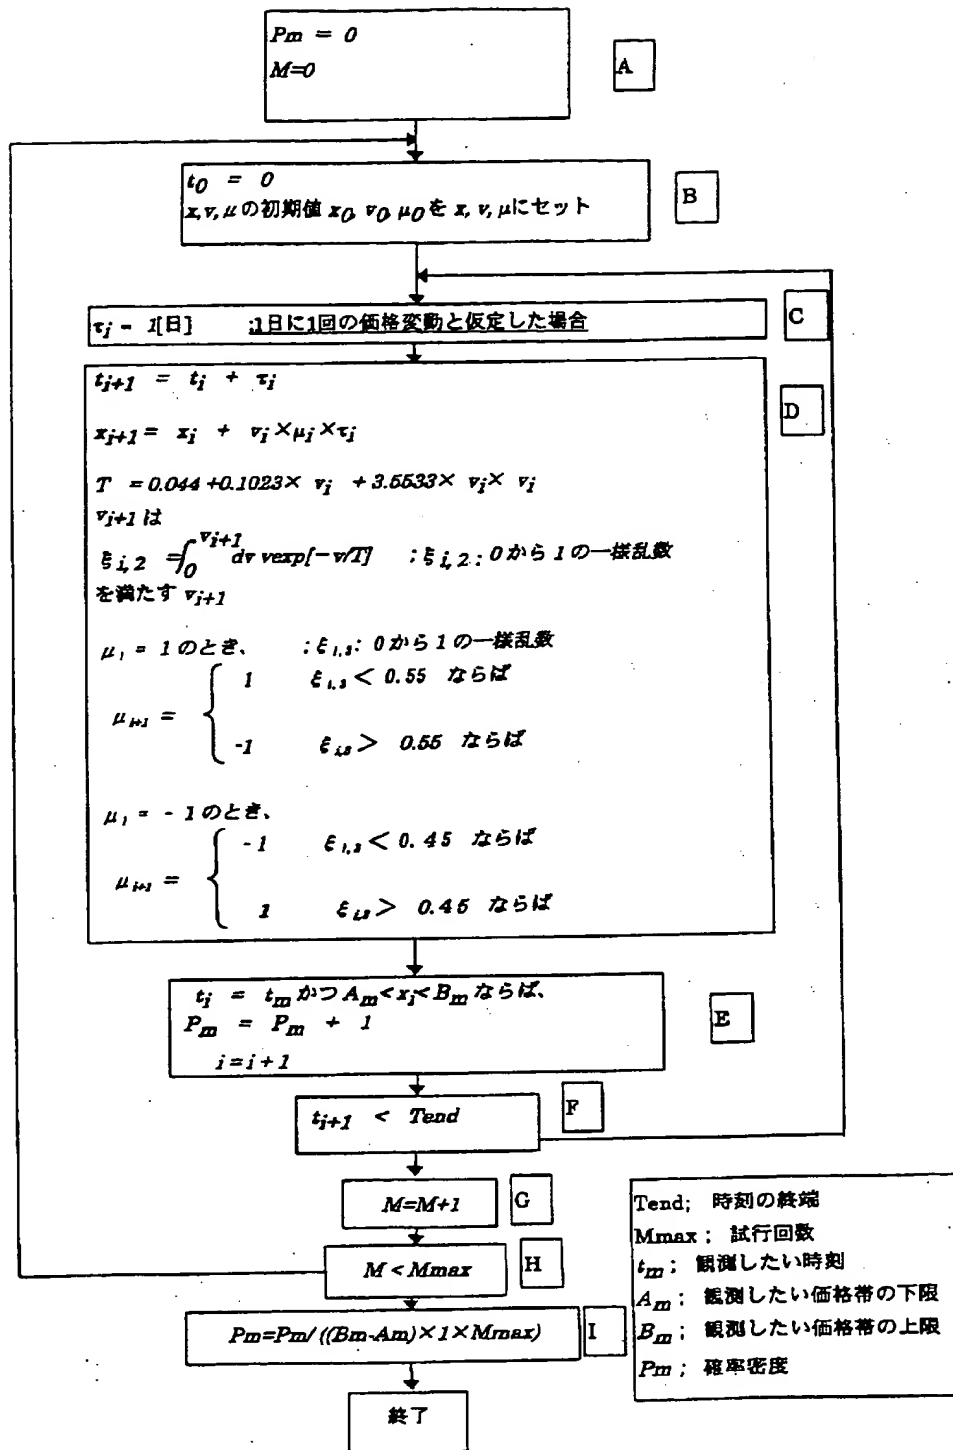 Pm = 0
M=0
A
t0 = 0
x,v,μの初期値 x0, v0, μ0を x, v, μにセット
B
τi = 1[日] ;1日に1回の価格変動と仮定した場合
C
D
ti+1 = ti + τi
xi+1 = xi + vi×μi×τi
T = 0.044+0.1023× vi +3.5533× vi× vi
vi+1 は
ξi,2 =∫0^vi+1 dv vexp[-v/T] ;ξi,2: 0から1の一様乱数
を満たす vi+1
μi = 1のとき、 ;ξi,3: 0から1の一様乱数
1 ξi,3< 0.55 ならば
μi+1 = {
-1 ξi,3> 0.55 ならば
μi = - 1のとき、
-1 ξi,3< 0.45 ならば
μi+1 = {
1 ξi,3> 0.45 ならば
ti = tmかつAm<xi<Bmならば、
Pm = Pm + 1
i=i+1
E
ti+1 < Tend
F
M=M+1
G
M<Mmax
H
Pm=Pm/((Bm-Am)×1×Mmax)
I
終了
Tend; 時刻の終端
Mmax; 試行回数
tm; 観測したい時刻
Am; 観測したい価格帯の下限
Bm; 観測したい価格帯の上限
Pm; 確率密度